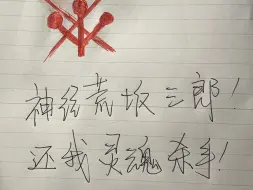 神经荒坂三郎！
还我灵魂杀手！